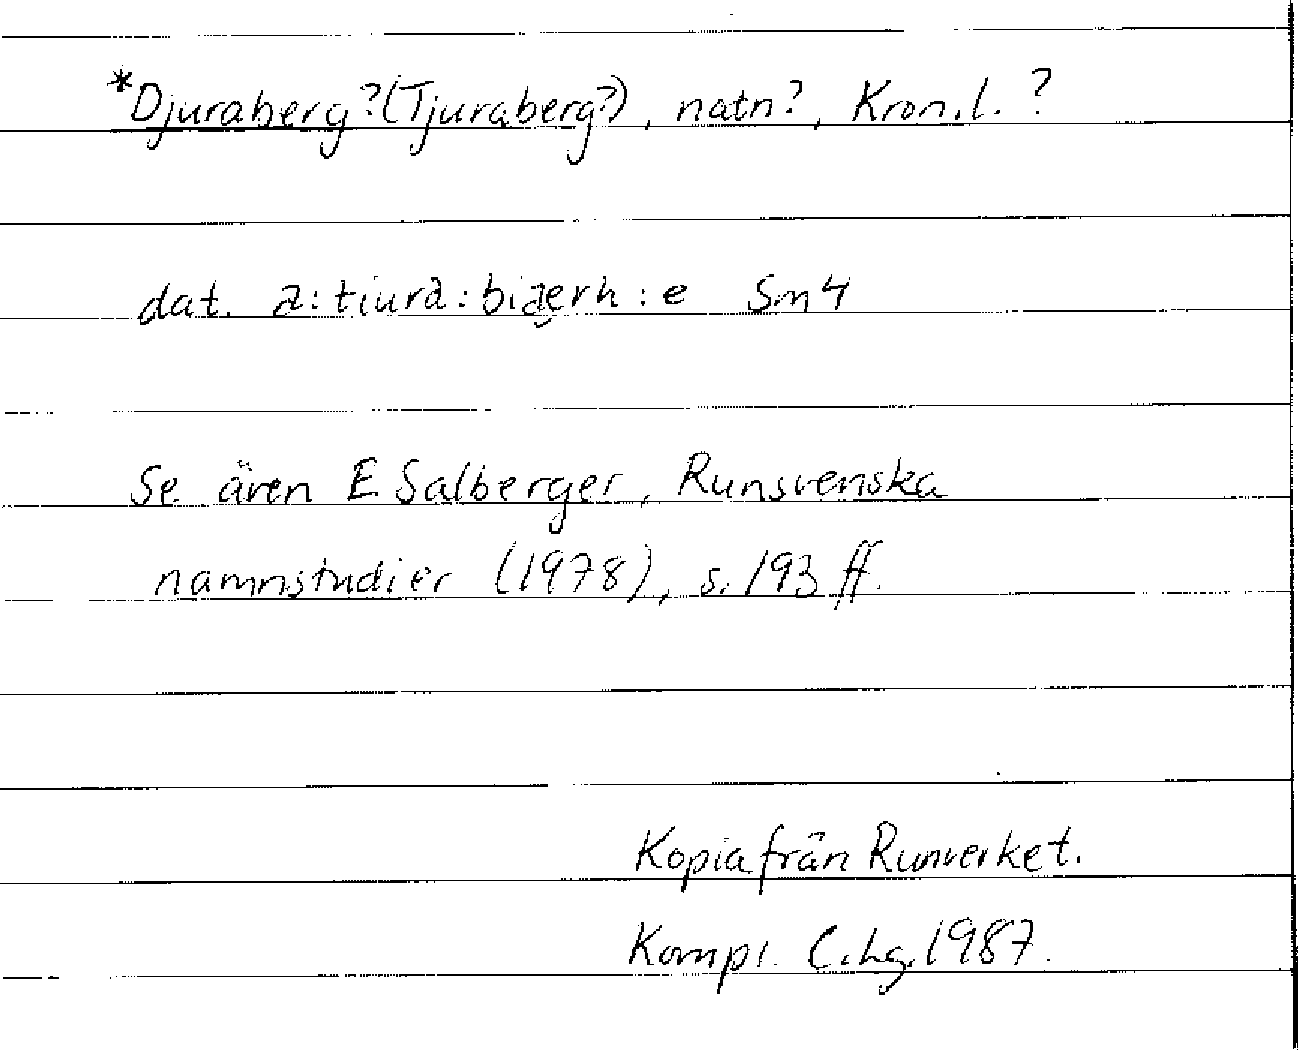 *Djuraberg?(Tjuraberg?), natn?, Kron.l. ?
dat. a:tiura:biærh:e Sm4
Se även E Salberger, Runsvenska
namnstudier (1978), s. 193 ff.
Kopia från Runverket.
Kompl. C.hg.1987.